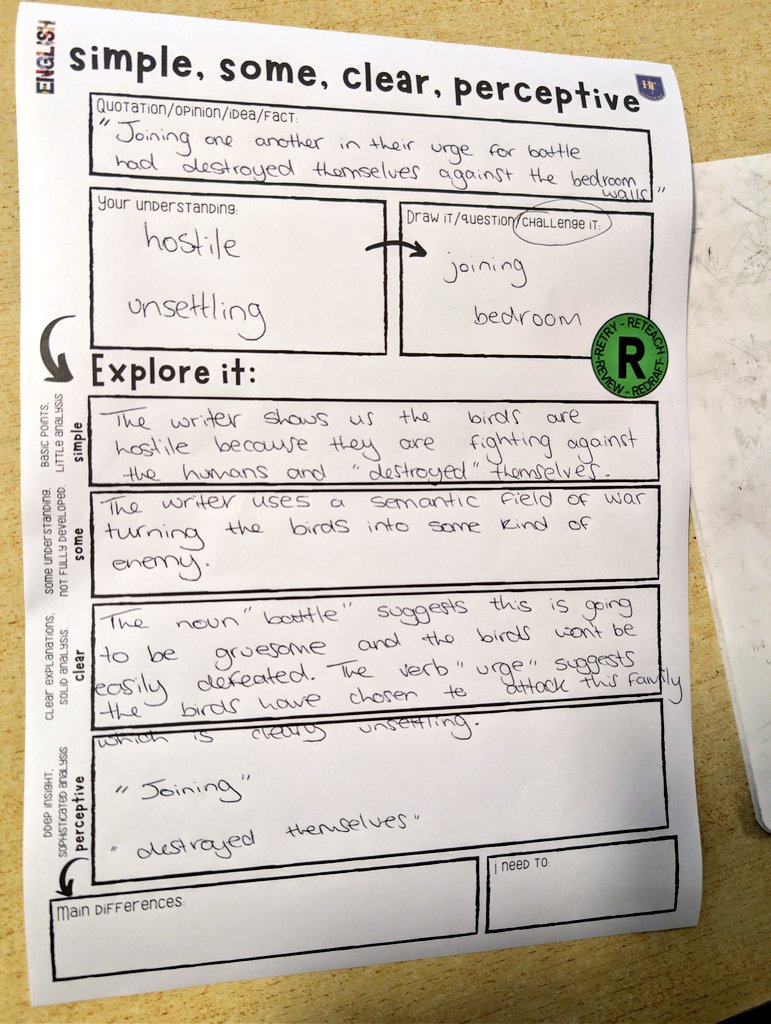 ENGLISH
simple, some, clear, perceptive
HF
QUOTATION/OPINION/IDEA/FACT:
"Joining one another in their urge for battle
had destroyed themselves against the bedroom
walls"
YOUR UNDERSTANDING:
hostile
unsettling
DRAW IT/QUESTION/CHALLENGE IT:
joining
bedroom
R
-RETRY - RETEACH
-REVIEW - REDRAFT-
Explore it:
BASIC POINTS.
LITTLE ANALYSIS
simple
The writer shows us the birds are
hostile because they are fighting against
the humans and "destroyed" themselves.
SOME UNDERSTANDING.
NOT FULLY DEVELOPED.
some
The writer uses a semantic field of war
turning the birds into some kind of
enemy.
CLEAR EXPLANATIONS.
SOLID ANALYSIS
clear
The noun "battle" suggests this is going
to be gruesome and the birds won't be
easily defeated. The verb "urge" suggests
the birds have chosen to attack this family
which is clearly unsettling.
DDEP INSIGHT.
SOPHISTICATED ANALYSIS
perceptive
"Joining"
"destroyed themselves"
MAIN DIFFERENCES:
I NEED TO: